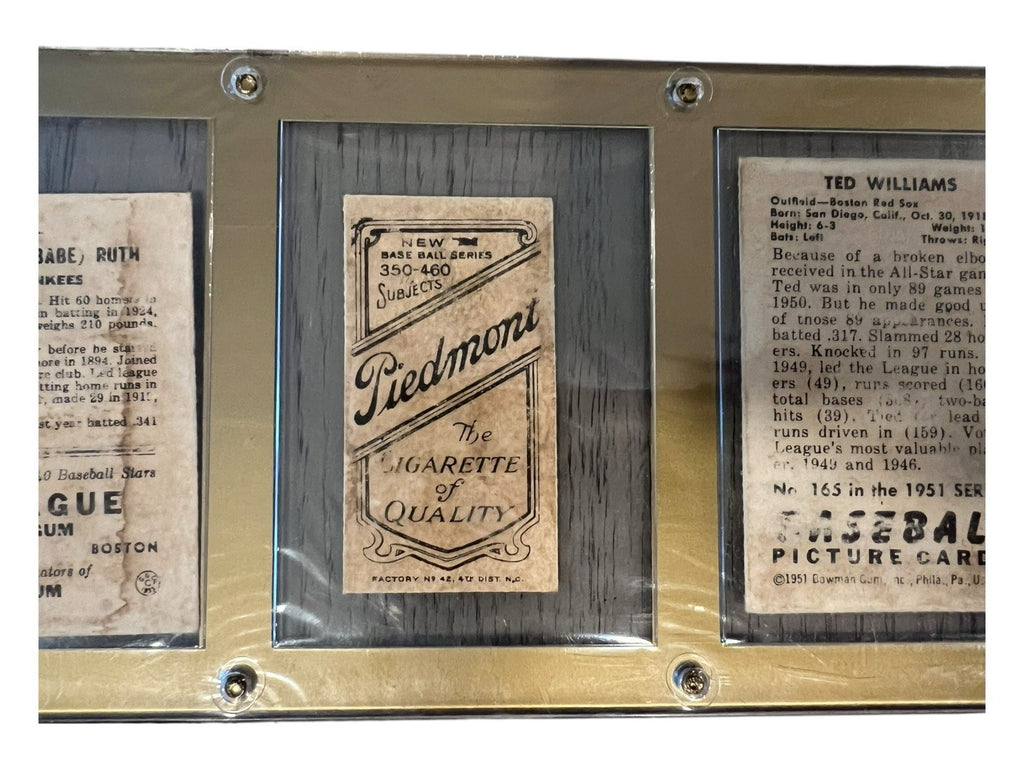 BABE) RUTH
NKEES
Hit 60 homers in
n batting in 1924,
weighs 210 pounds.
before he started
ore in 1894. Joined
re club. Led league
tting home runs in
made 29 in 191
st year batted .341
Baseball Stars
GUE
GUM
BOSTON
ators of
UM
NEW
BASE BALL SERIES
350-460
SUBJECTS
Piedmont
The
CIGARETTE
of
QUALITY
FACTORY Nº 42, 4TH DIST. N.C.
TED WILLIAMS
Outfield—Boston Red Sox
Born: San Diego, Calif., Oct. 30, 1918
Height: 6-3 Weight: 1
Bats: Left Throws: Rig
Because of a broken elbo
received in the All-Star gam
Ted was in only 89 games
1950. But he made good
of those 89 appearances.
batted .317. Slammed 28 ho
ers. Knocked in 97 runs.
1949, led the League in ho
ers (49), runs scored (16
total bases two-ba
hits (39). Tied for lead
runs driven in (159). Vo
League's most valuable pla
er, 1949 and 1946.
No. 165 in the 1951 SER
BASEBAL
PICTURE CARD
©1951 Bowman Gum, Inc., Phila., Pa., U.